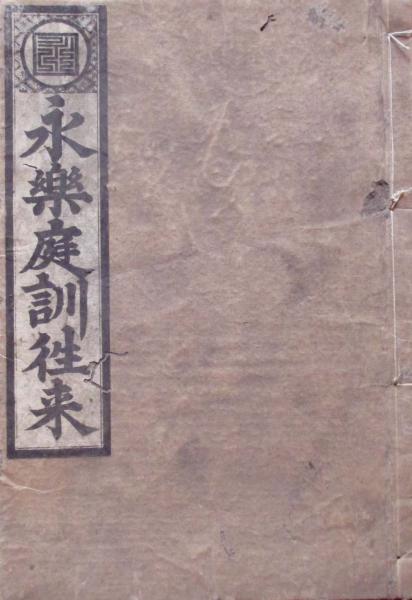 永樂庭訓徃来